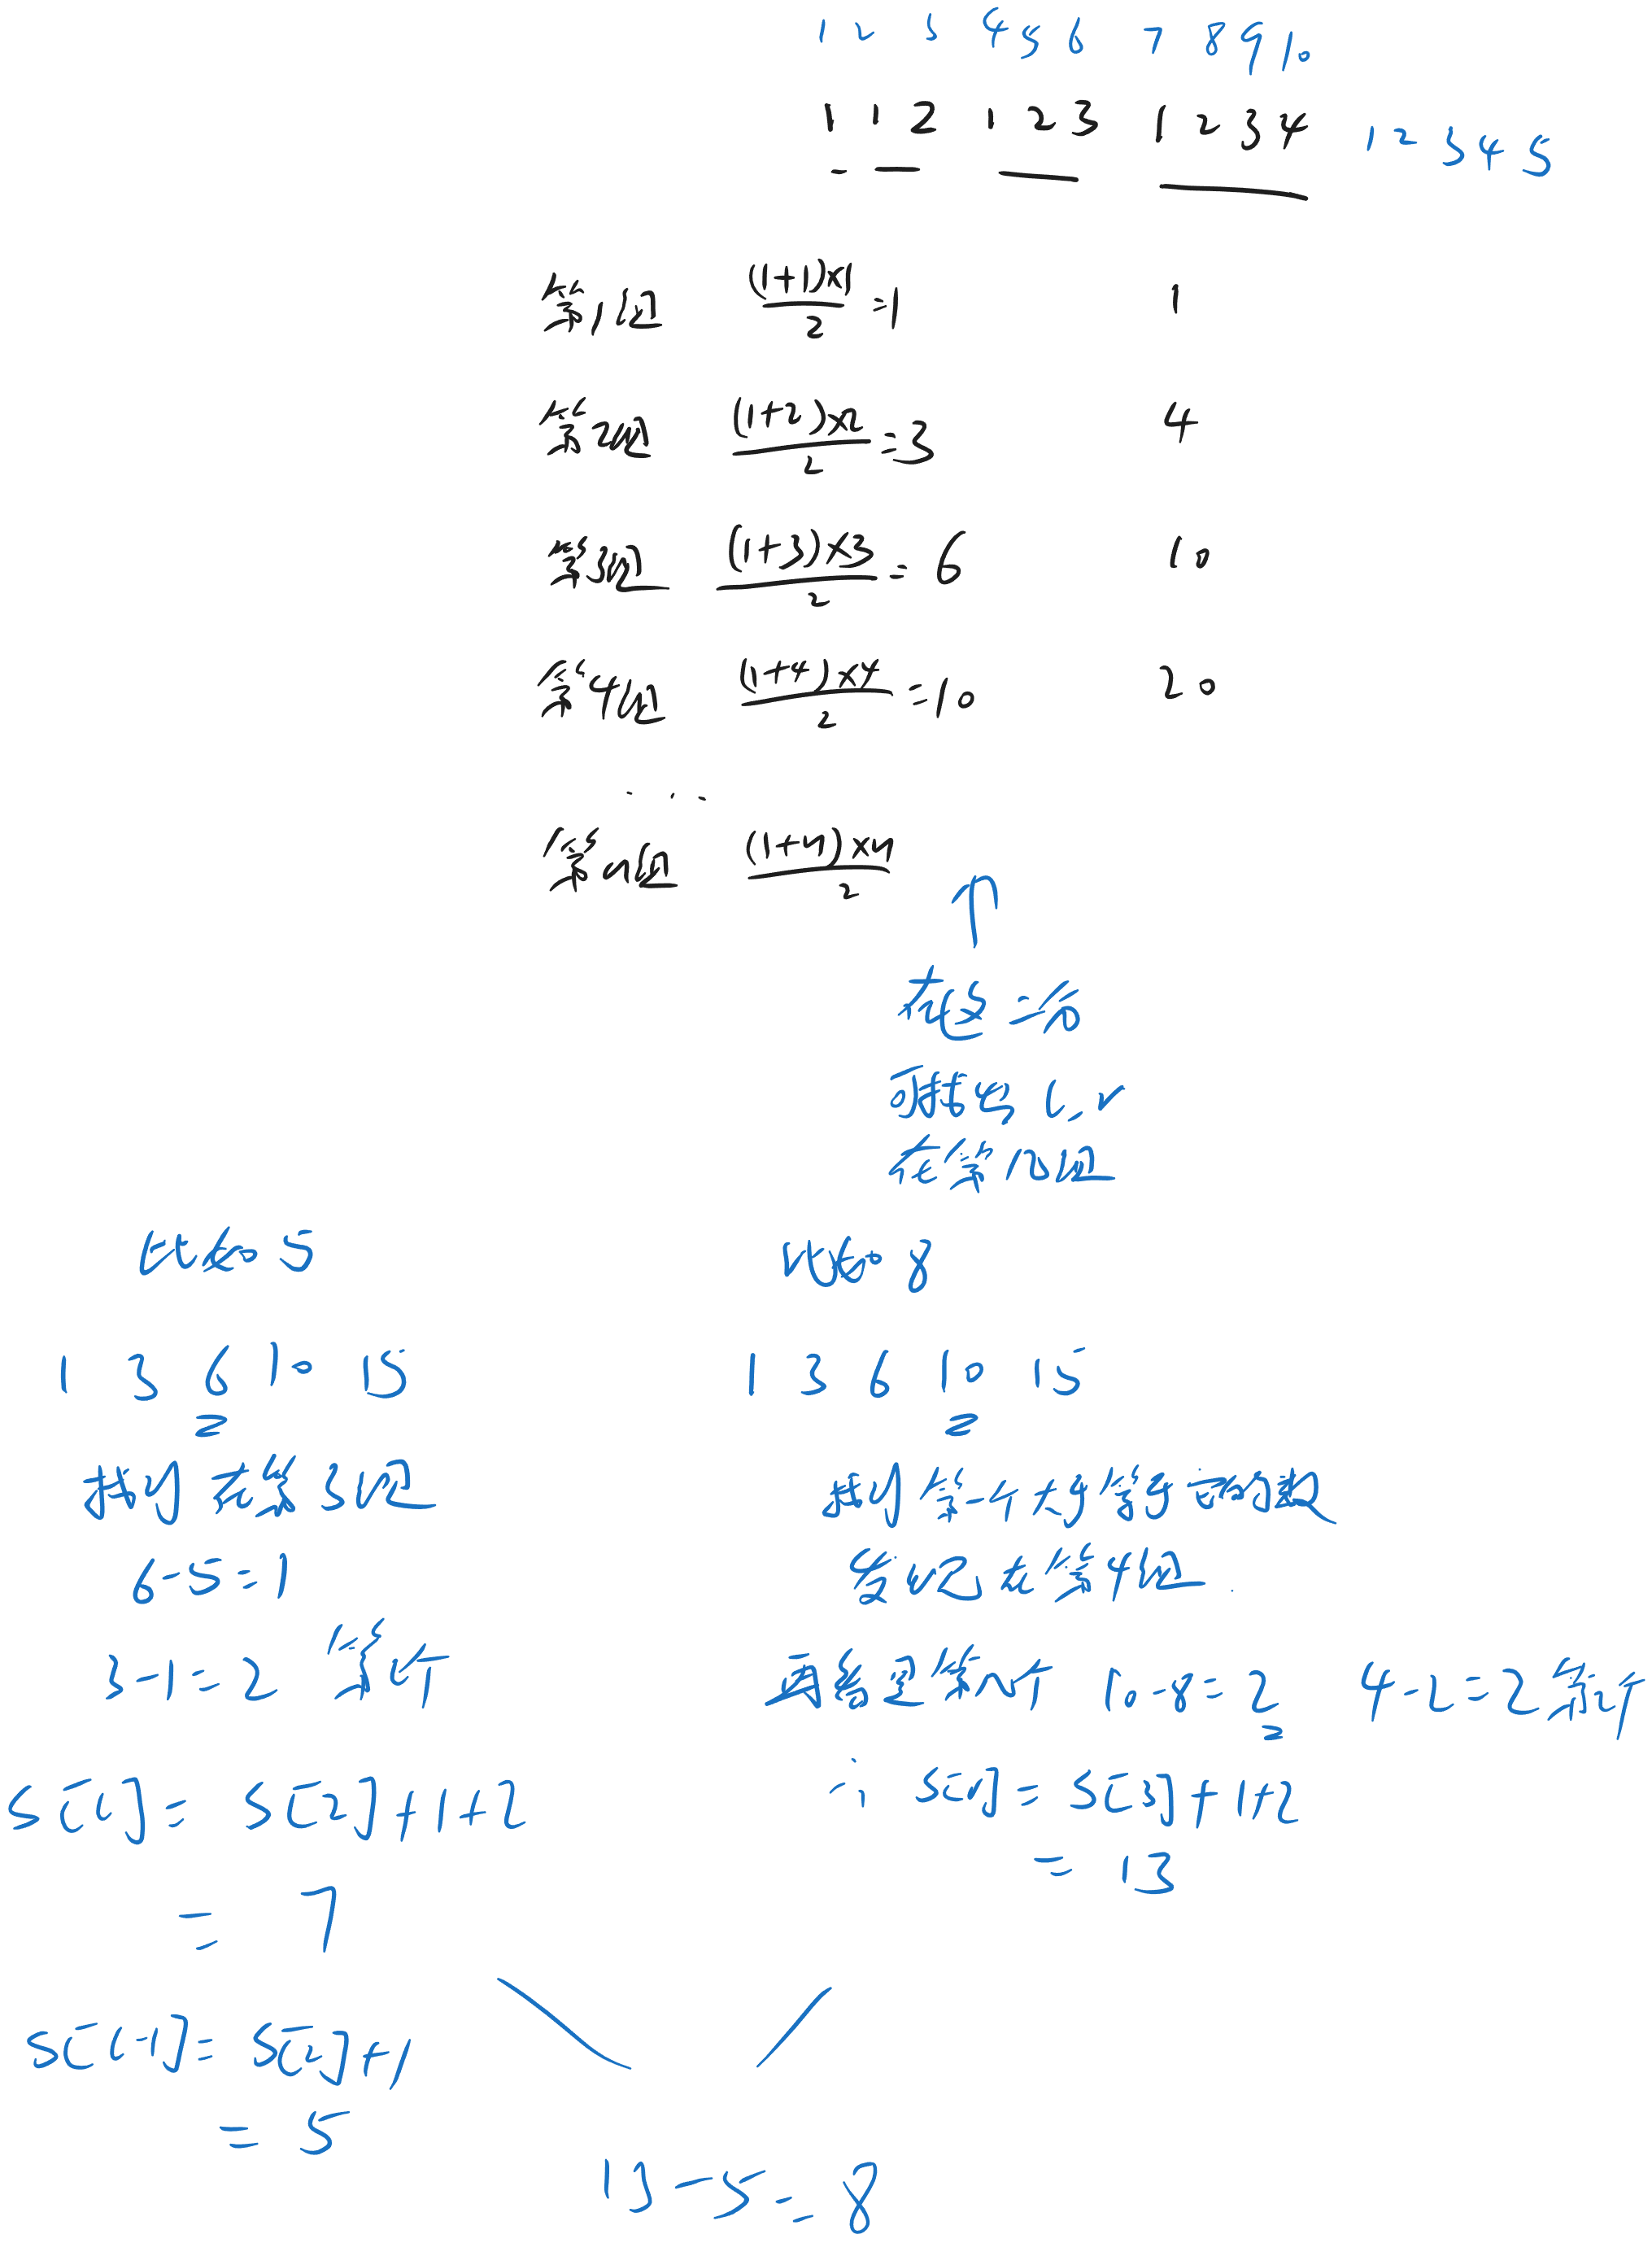 1 2 3 4 5 6 7 8 9 10
1 1 2 1 2 3 1 2 3 4 1 2 3 4 5
第1组 (1+1)×1/2 =1 1
第2组 (1+2)×2/2 =3 4
第3组 (1+3)×3/2 = 6 10
第4组 (1+4)×4/2 =10 20
...
第n组 (1+n)×n/2
↑
在这二分
可找出 l,r
在第几组
比如 5
1 3 6 10 15
找到 在第3组
6-5=1
3-1=2 第2个
S[l]= S[2]+1+2
= 7
S[l-1]= S[2]+1
= 5
比如 8
1 3 6 10 15
找到第一个大于等于 的数
登记在第4组
再看是第几个 10-8=2 4-2=2 第2个
∴ S[r]= S[3]+1+2
= 13
13-5=8